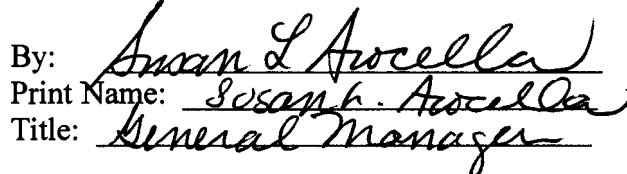 By: Susan L Arocella
Print Name: Susan L. Arocella
Title: General Manager